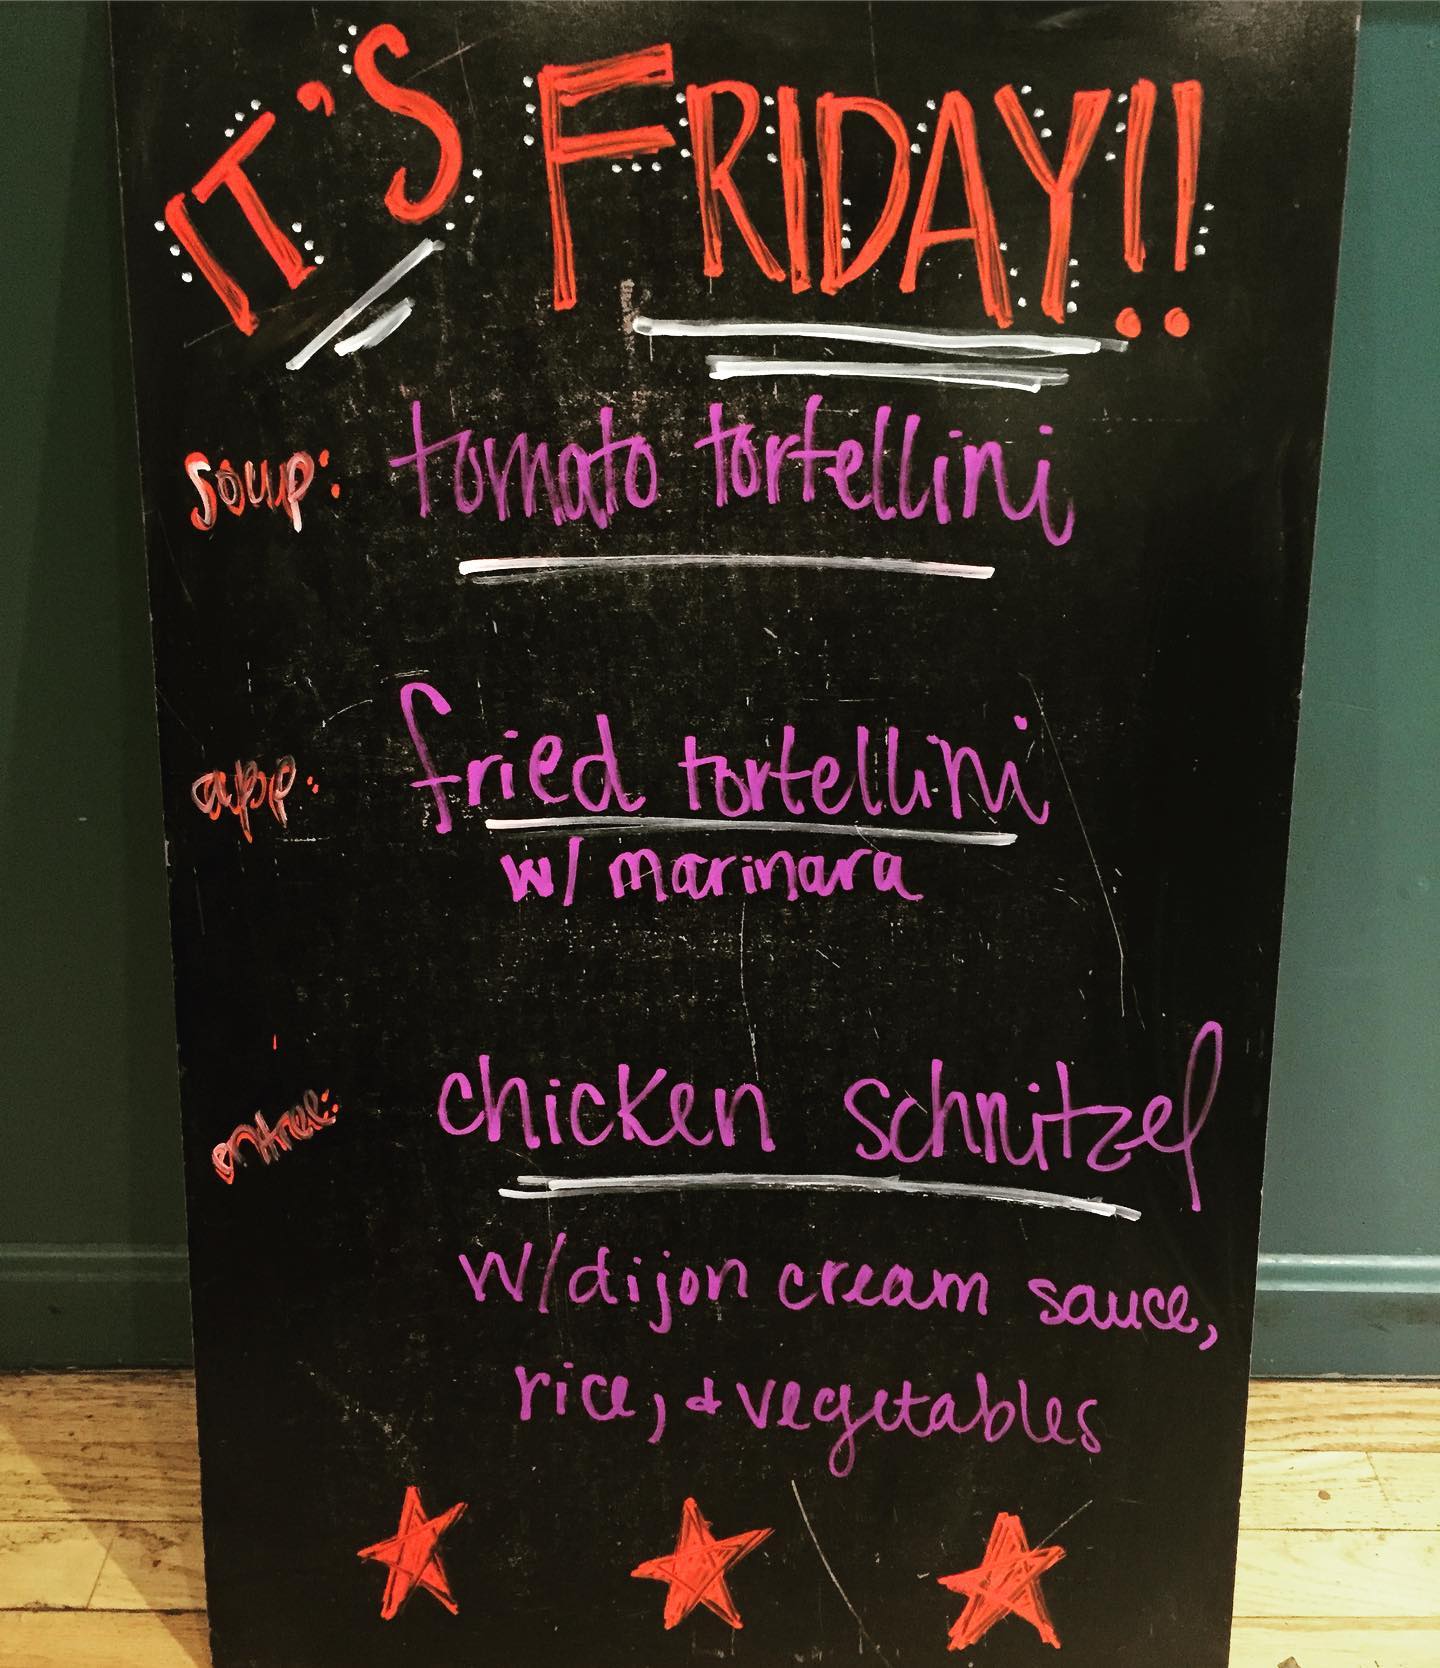 IT'S FRIDAY!!
soup: tomato tortellini
app: fried tortellini
w/ marinara
entree: chicken schnitzel
w/ dijon cream sauce,
rice, & vegetables